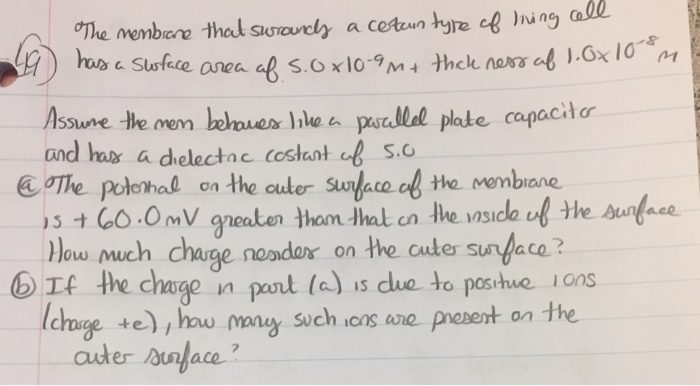 The membrane that surounds a certain type of living cell
49) has a surface area of 5.0 x 10⁻⁹ M + thickness of 1.0x10⁻⁸ M
Assume the mem behaves like a parallel plate capacitor
and has a dielectric costant of 5.0
ⓐ The potential on the outer surface of the membrane
is + 60.0 mV greater than that on the inside of the surface
How much charge resides on the outer surface?
ⓑ If the charge in part (a) is due to positive ions
(charge +e), how many such ions are present on the
outer surface?